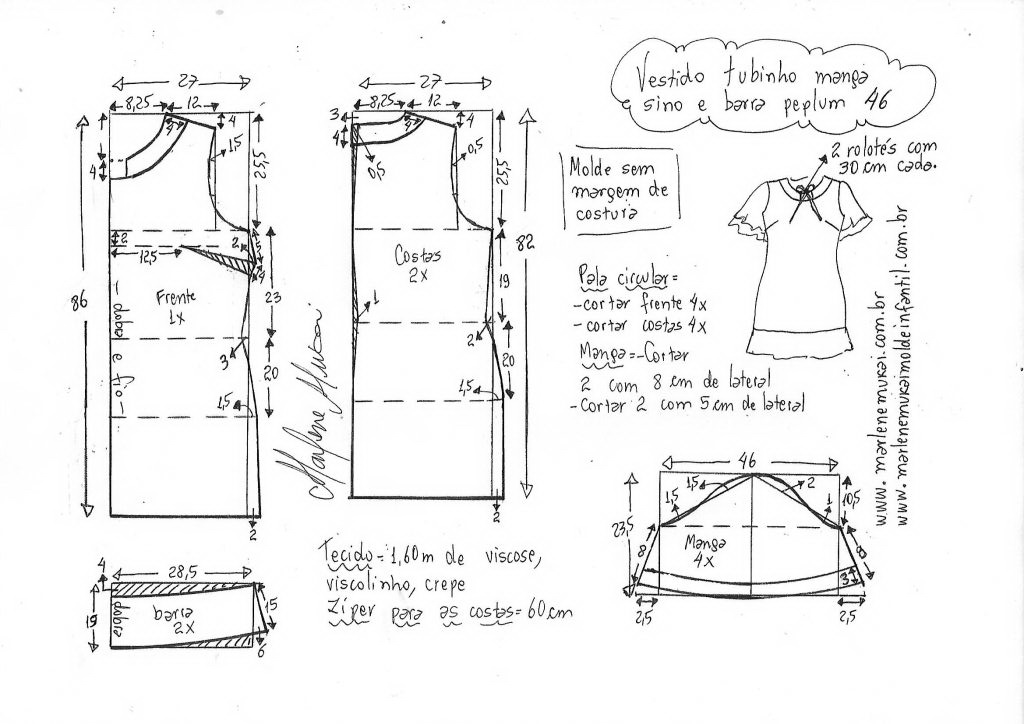 Vestido tubinho manga
sino e barra peplum 46
2 rolotês com
30 cm cada.
Molde sem
margem de
costura
Pala circular=
-cortar frente 4x
-cortar costas 4x
Manga=-Cortar
2 com 8 cm de lateral
-Cortar 2 com 5 cm de lateral
www.marlenemukai.com.br
www.marlenemukaimoldeinfantil.com.br
27
8,25 12
4
4
1,5
25,5
4
2
12,5
2
4
86
Frente
1x
23
- dobra e fio -
3
20
1,5
2
Marlene Mukai
27
8,25 12
3
4
4
4
0,5
0,5
25,5
82
Costas
2x
19
1
2
20
1,5
2
4
28,5
19
dobra
barra
2x
15
6
Tecido=1,60m de viscose,
viscolinho, crepe
Zíper para as costas=60cm
46
1,5
2
1,5
1
10,5
23,5
Manga
4x
8
8
3
2,5
2,5